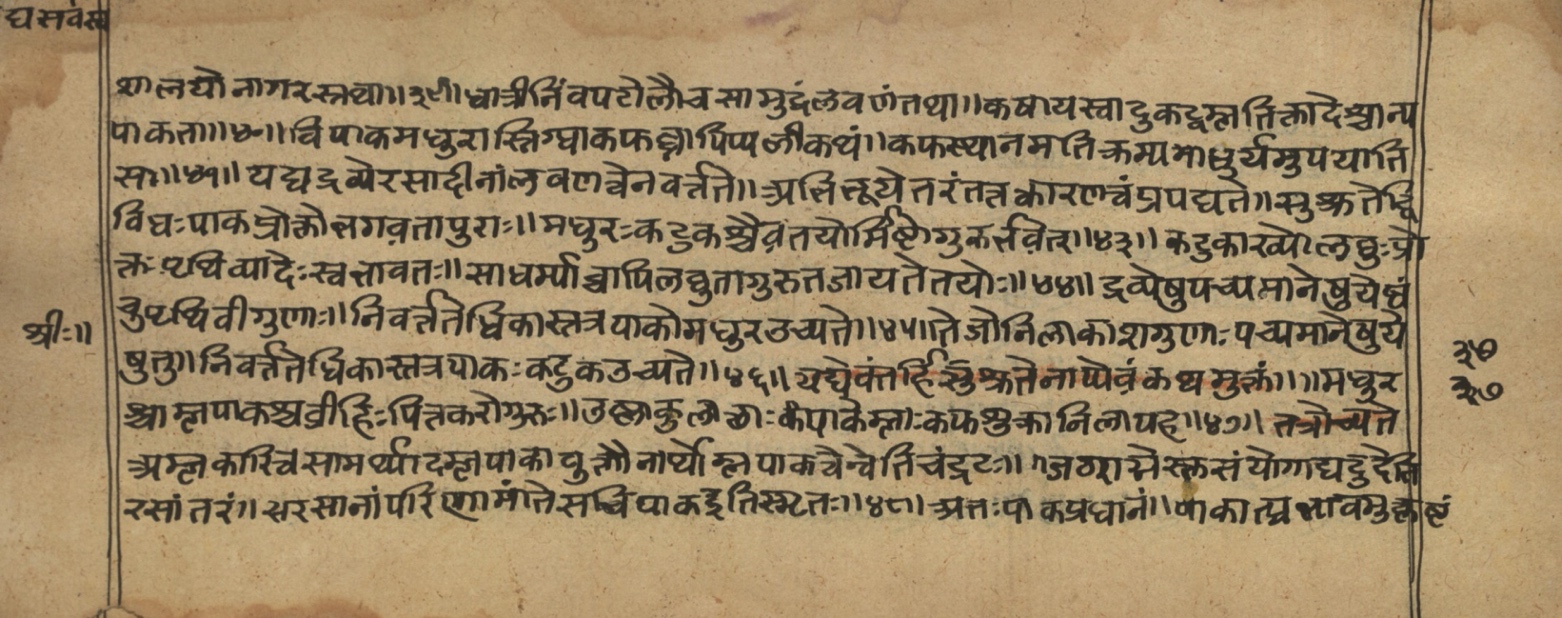 द्य सर्वस्व
शालयो नागरस्तथा॥३९॥ धात्रीनिंबपटोलौच सामुद्रंलवणंतथा॥ कषायस्वादुकट्वम्लतिक्तादेश्चान्य
पाकता॥४०॥ विपाकमधुरास्निग्धाकफघ्नीपिप्पलीकथं॥ कफस्थानमतिक्रम्यमाधुर्यमुपयाति
सा॥४१॥ यद्यद्रव्येरसादीनांलवणत्वेनवर्त्तते॥ अभिभूयेतरंतत्तकारणत्वंप्रपद्यते॥ सुश्रुतेद्वि
विधःपाकप्रोक्तोभगवतापुराः॥ मधुरःकटुकश्चैवतयोर्मिष्टोगुरुर्भवेत्॥४३॥ कटुकाख्योलघुःप्रो
क्तःपृथिव्यादेःस्वभावतः॥ साधर्म्याच्चापिलघुतागुरुताजायतेतयोः॥४४॥ द्रव्येषुपच्यमानेषुयेष्वं
बुपृथिवीगुणाः॥ निवर्त्ततेधिकास्तत्रपाकोमधुरउच्यते॥४५॥ तेजोनिलाकाशगुणाःपच्यमानेषुये
श्रीः॥
षुतु॥ निवर्त्ततेधिकास्तत्रपाकःकटुकउच्यते॥४६॥ यद्येवंतर्हिसुश्रुतेनाप्येवंकथमुक्तं॥॥ मधुर
३७
३७
श्चाम्लपाकश्चव्रीहिःपित्तकरोगुरुः॥ उष्णाकुलत्थाःपाकेम्लाःकफशुक्रानिलापह॥४७॥ तत्रोच्यते
अम्लकारित्वसामर्थ्यादम्लपाकावुक्तौनार्थोम्लपाकत्वेन्वेतिचंद्रटः॥ जाठराग्नेस्तुसंयोगाद्यदुदेति
रसांतरं॥ सरसानांपरिणामांतेसविपाकइतिस्मृतः॥४८॥ अतःपाकप्रधानं॥ पाकात्प्रभावमुक्तष्टं